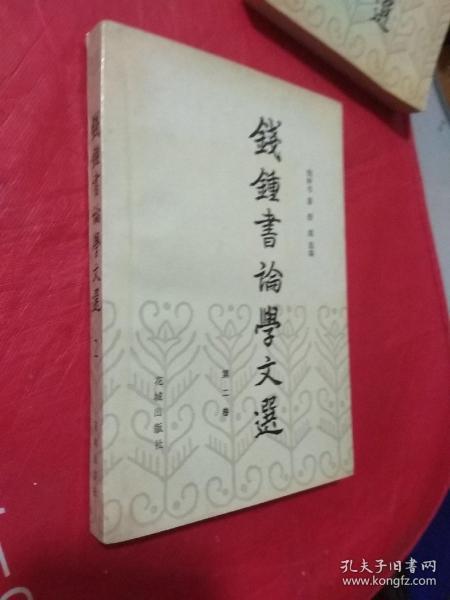 錢鍾書論學文選
钱钟书 著 舒展 选编
第二卷
花城出版社
錢鍾書論學文選 2
選
孔夫子旧书网
www.kongfz.com